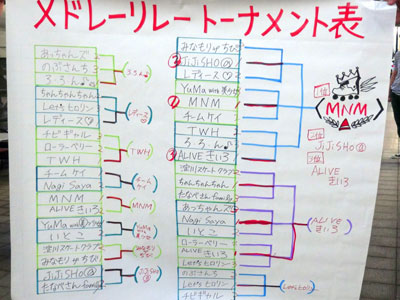 メドレーリレートーナメント表
あっちゃんズ
のぶさんち
ろろん♪
ちゃんちゃんちゃん
Let's ヒロリン
レディース♡
チビギャル
ローラーベリー
TWH
チームケイ
Nagi Saya
MNM
ALIVE きいろ
YuMa
いとこ
淀川スケートクラブ
みなモリ サ ちび
JiJiSHO@
たなべさん family
ろろん♪
レディース♡
TWH
チームケイ
MNM
YuMa
みなモリ サ ちび
JiJiSHO@
みなモリ サ ちび
② JiJiSHO@
レディース♡
YuMa
① MNM
チームケイ
TWH
ろろん♪
③ ALIVE きいろ
淀川スケートクラブ
ちゃんちゃんちゃん
たなべさん family
あっちゃんズ
Nagi Saya
いとこ
ローラーベリー
ALIVE きいろ
Let's ヒロリン
のぶさんち
Let's ヒロリン
チビギャル
ALIVE きいろ
1位
MNM
2位
JiJiSHO@
3位
ALIVE きいろ